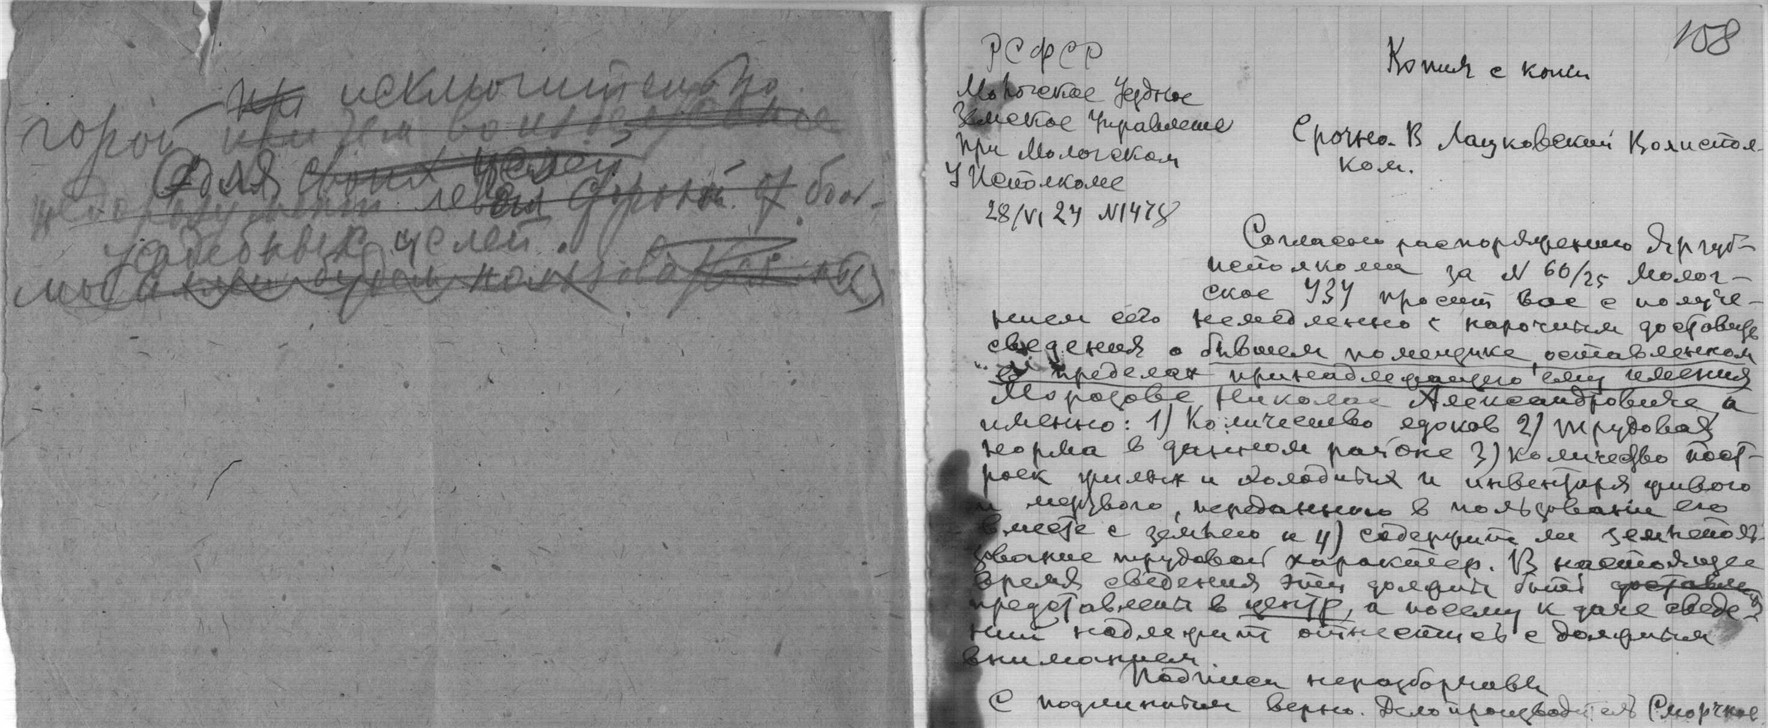 при исключительно
горой
для своих целей
левой стороной
усадебных целей.
мы будем
108
РСФСР
Мологское Уездное
Земское Управление
при Мологском
УИсполкоме
28/VI 24 №1478
Копия с копии
Срочно. В Лацковский Волиспол-
ком.
Согласно распоряжению Яргуб-
исполкома за № 60/25 Молог-
ское УЗУ просит вас с получе-
нием сего немедленно с нарочным доставить
сведения о бывшем помещике, оставленном
в пределах принадлежащего ему имения
Морозове Николае Александровиче, а
именно: 1) Количество едоков 2) трудовая
норма в данном районе 3) количество пост-
роек жилых и холодных и инвентаря живого
и мертвого, переданного в пользование его
вместе с землею и 4) содержит ли землеполь-
зование трудовой характер. В настоящее
время сведения эти должны быть доставлены
представлены в центр, а посему к даче сведе-
ний надлежит отнестись с должным
вниманием.
Подписи неразборчивы
С подлинным верно. Делопроизводитель